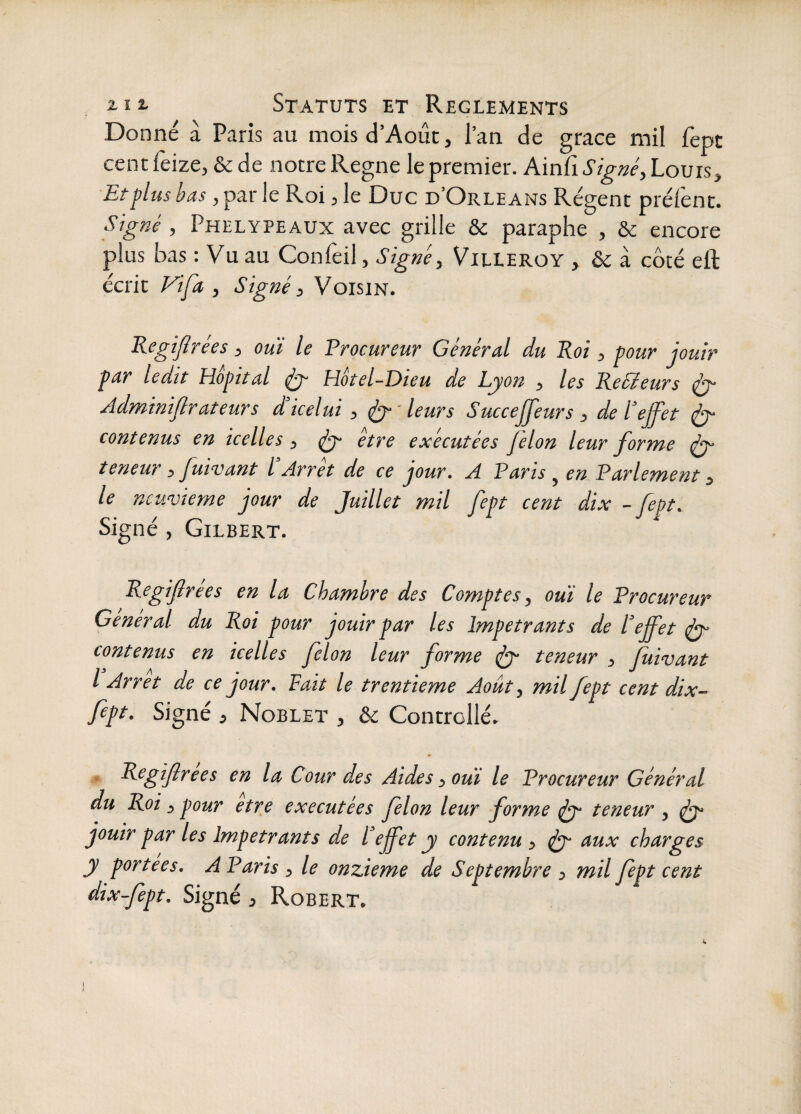 212 STATUTS ET REGLEMENTS
Donné à Paris au mois d'Août, l'an de grace mil ſept
cent ſeize, & de notre Regne le premier. Ainſi Signé, LOUIS,
Et plus bas, par le Roi, le DUC D'ORLEANS Régent préſent.
Signé, PHELYPEAUX avec grille & paraphe, & encore
plus bas : Vu au Conſeil, Signé, VILLEROY, & à côté eſt
écrit Viſa, Signé, VOISIN.
Regiſtrées, ouï le Procureur Général du Roi, pour jouir
par ledit Hôpital & Hôtel-Dieu de Lyon, les Recteurs &
Adminiſtrateurs d'icelui, & leurs Succeſſeurs, de l'effet &
contenus en icelles, & être exécutées ſelon leur forme &
teneur, ſuivant l'Arrêt de ce jour. A Paris, en Parlement,
le neuvieme jour de Juillet mil ſept cent dix-ſept.
Signé, GILBERT.
Regiſtrées en la Chambre des Comptes, ouï le Procureur
Général du Roi pour jouir par les Impetrants de l'effet &
contenus en icelles ſelon leur forme & teneur, ſuivant
l'Arrêt de ce jour. Fait le trentieme Août, mil ſept cent dix-
ſept. Signé, NOBLET, & Controllé.
Regiſtrées en la Cour des Aides, ouï le Procureur Général
du Roi, pour être executées ſelon leur forme & teneur, &
jouir par les Impetrants de l'effet y contenu, & aux charges
y portées. A Paris, le onzieme de Septembre, mil ſept cent
dix-ſept. Signé, ROBERT.